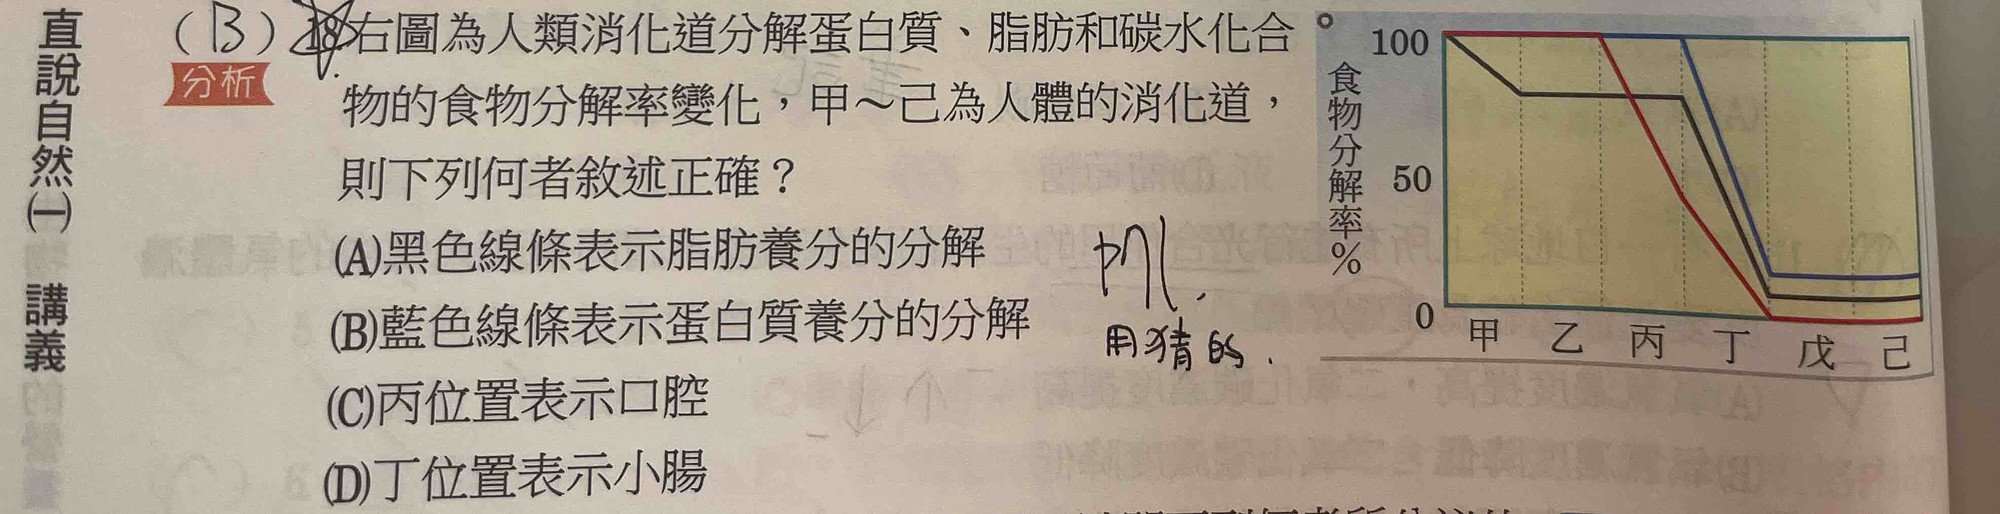 直說自然㈠ 講義
(B) 18.右圖為人類消化道分解蛋白質、脂肪和碳水化合
分析
物的食物分解率變化，甲～己為人體的消化道，
則下列何者敘述正確？
(A)黑色線條表示脂肪養分的分解
(B)藍色線條表示蛋白質養分的分解
(C)丙位置表示口腔
(D)丁位置表示小腸
用猜的.
食物分解率%
100
50
0
甲 乙 丙 丁 戊 己